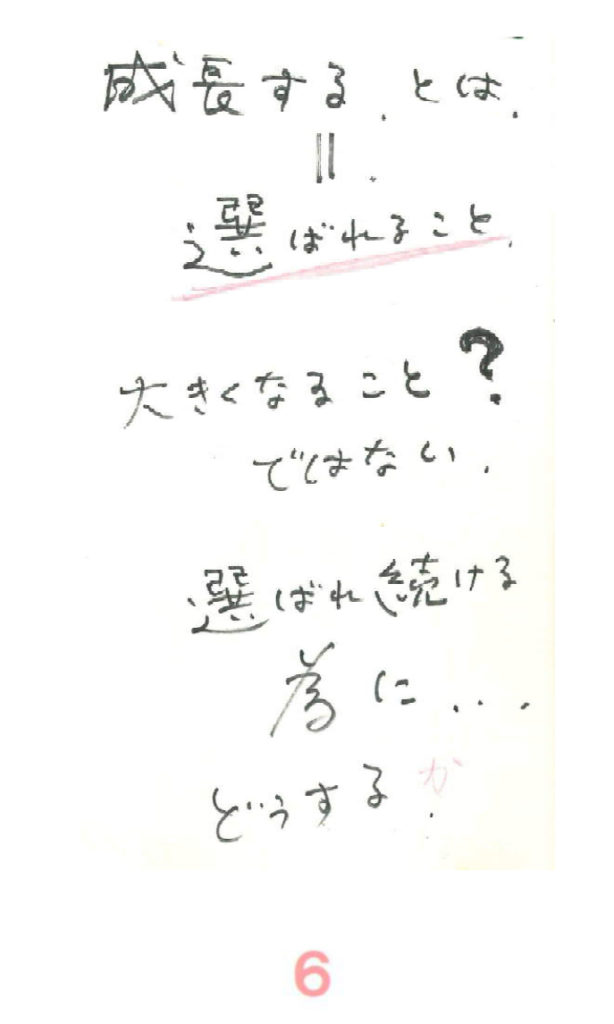 成長する.とは.
||.
選ばれること.
大きくなること?
ではない.
選ばれ続ける
為に...
どうするか.
6